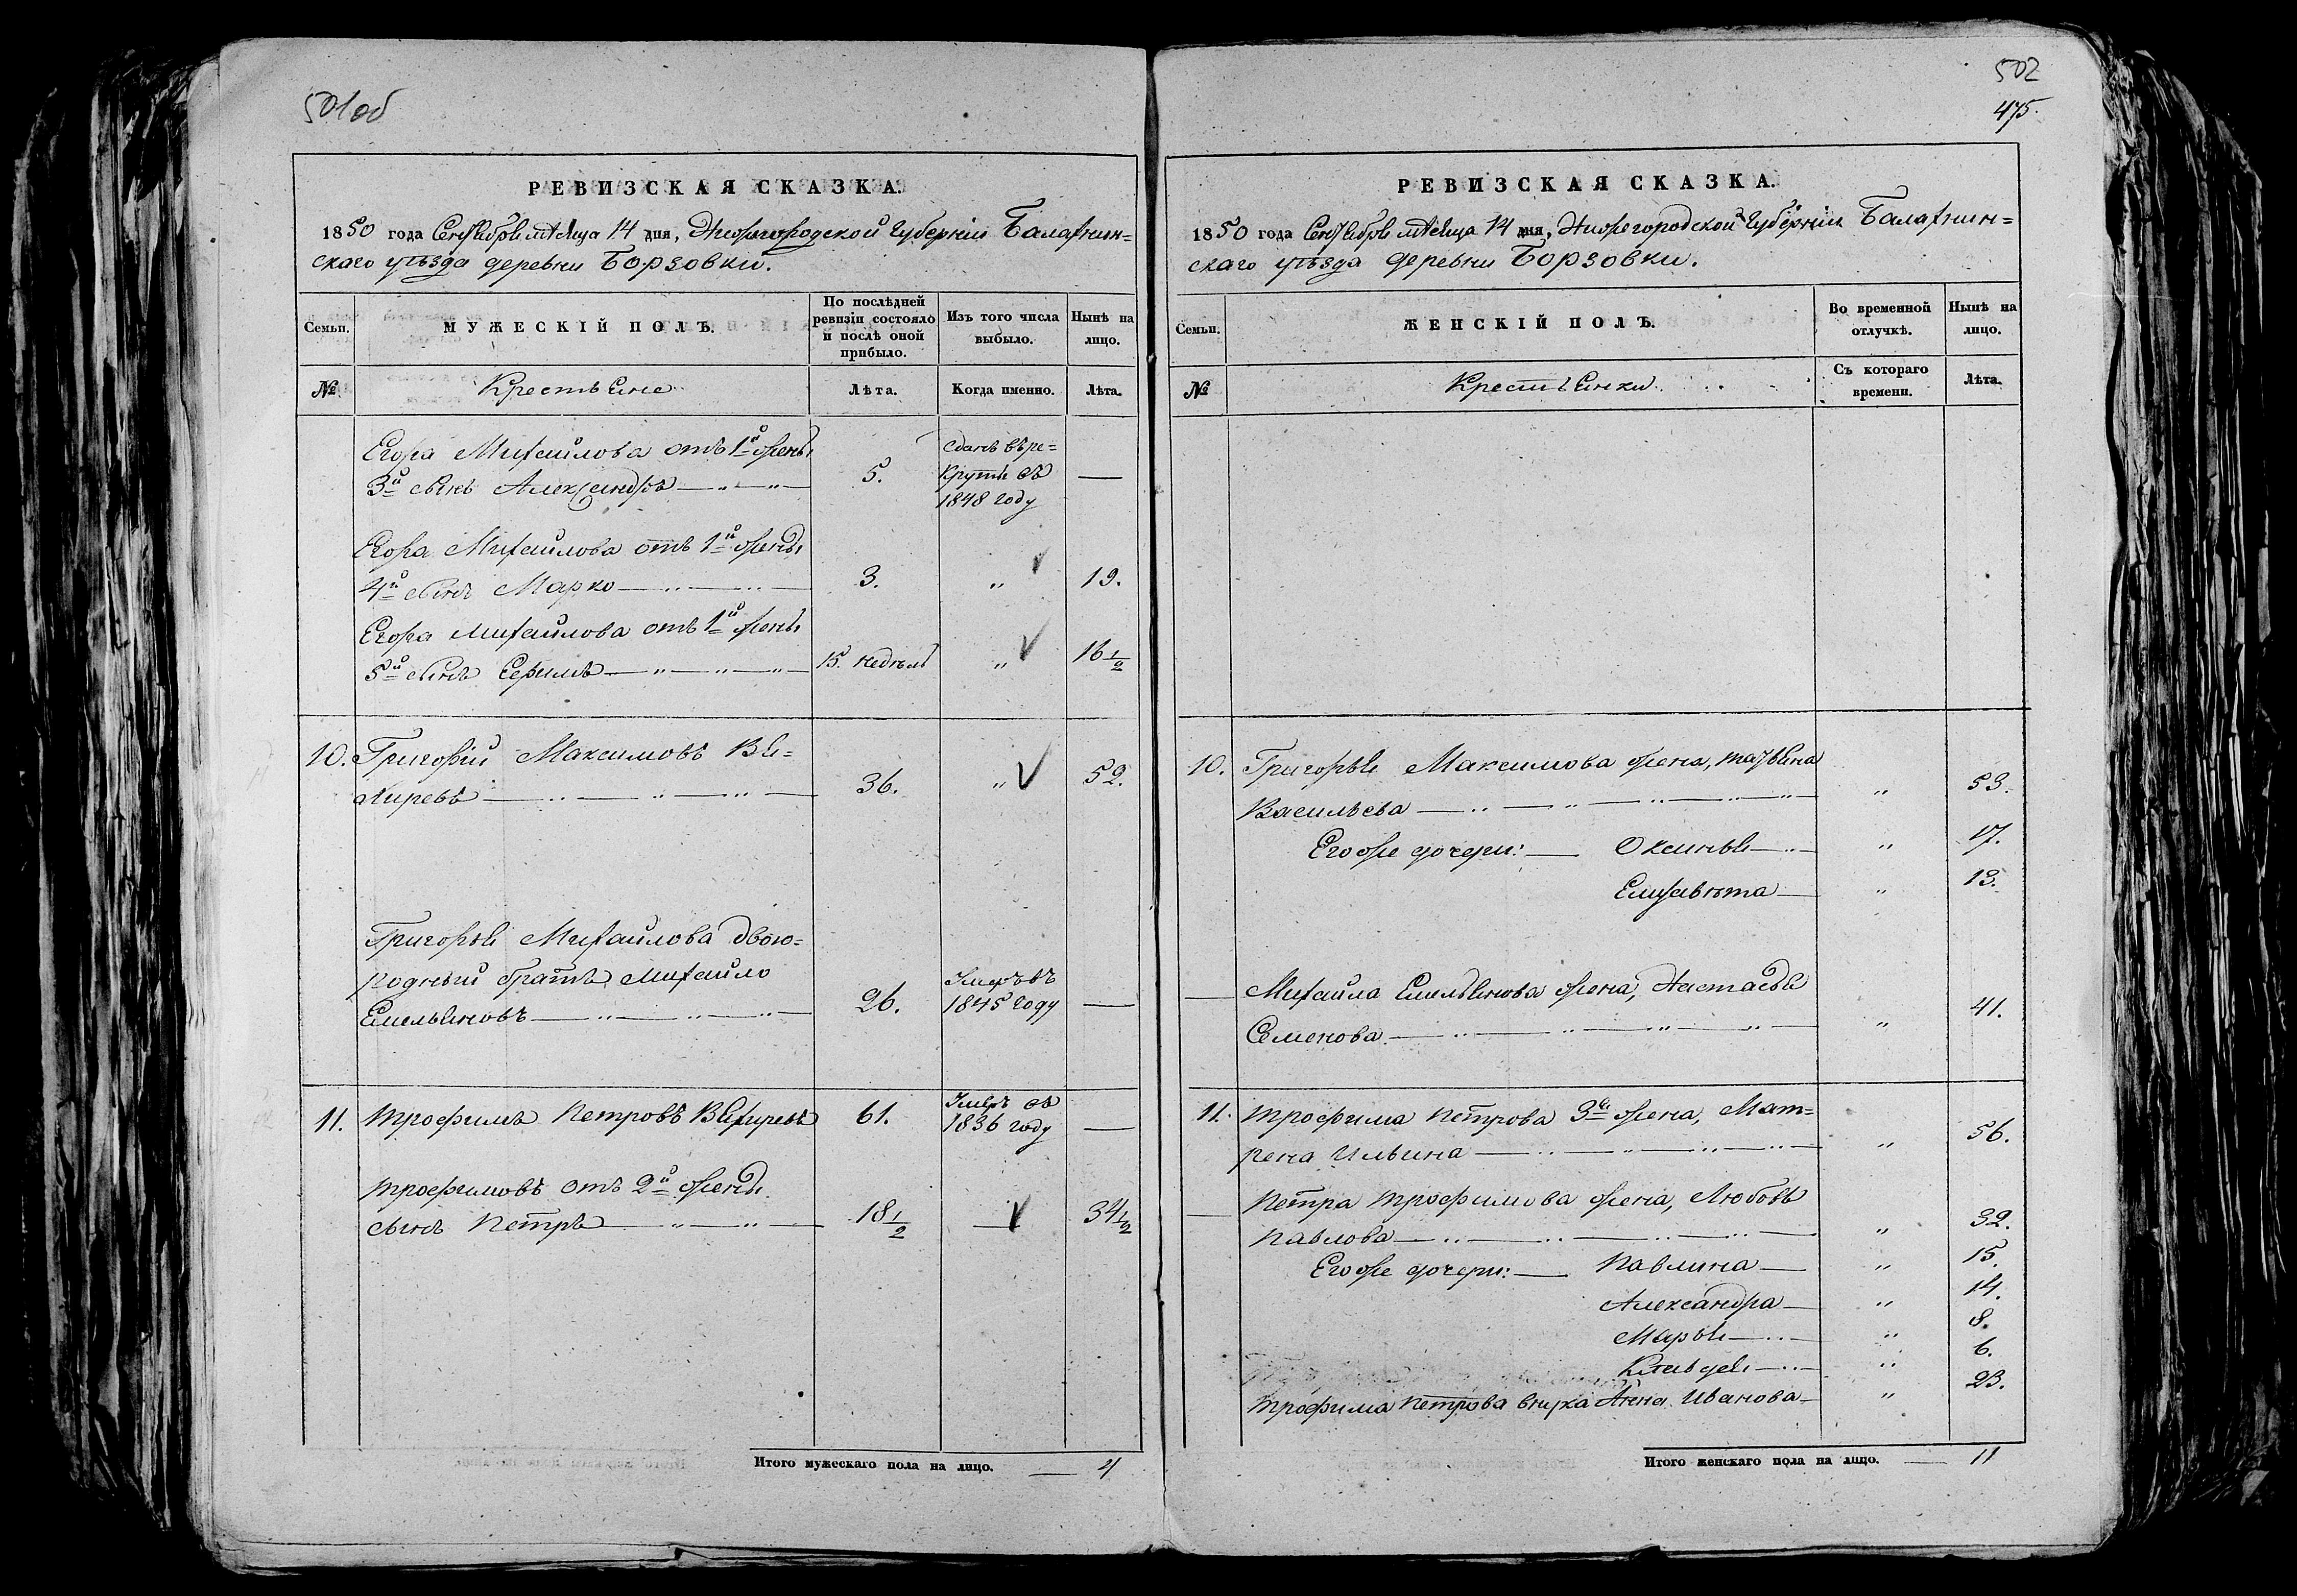 501об
РЕВИЗСКАЯ СКАЗКА.
1850 года Сентября мѣсяца 14 дня, Нижегородской Губерніи Балахнин=
скаго уѣзда деревни Борзовки.
Семьи.
МУЖЕСКІЙ ПОЛЪ.
По послѣдней ревизіи состояло и послѣ оной прибыло.
Изъ того числа выбыло.
Нынѣ на лицо.
№
Крестьяне
Лѣта.
Когда именно.
Лѣта.
Егора Михайлова отъ 1й жены
3й сынъ Александръ
5.
Сданъ въ ре=
круты въ
1848 году
—
Егора Михайлова отъ 1й жены
4й сынъ Марко
3.
"
19.
Егора Михайлова отъ 1й жены
5й сынъ Ефимъ
15. недѣль
"
16 1/2
10. Григорій Максимовъ Вя=
хиревъ
36.
"
52.
Григорья Михайлова двою=
родный братъ Михайло
Емельяновъ
26.
Умеръ въ
1845 году
—
11. Трофимъ Петровъ Вяхиревъ
61.
Умеръ въ
1836 году
—
Трофимовъ отъ 2й жены
сынъ Петръ
18 1/2
—
34 1/2
Итого мужескаго пола на лицо. — 4
502
475.
РЕВИЗСКАЯ СКАЗКА.
1850 года Сентября мѣсяца 14 дня, Нижегородской Губерніи Балахнин=
скаго уѣзда деревни Борзовки.
Семьи.
ЖЕНСКІЙ ПОЛЪ.
Во временной отлучкѣ.
Нынѣ на лицо.
№
Крестьянки
Съ котораго времени.
Лѣта.
10. Григорья Максимова жена, Татьяна
Васильева
"
53.
Его же дочери: — Оксинья
"
17.
Елизавѣта
"
13.
Михайла Емельянова жена, Настасья
Семенова
"
41.
11. Трофима Петрова 3я жена, Мат=
рена Ильина
"
56.
Петра Трофимова жена, Любовь
Павлова
"
32.
Его же дочери: — Павлина
"
15.
Александра
"
14.
Марья
"
8.
Клавдея
"
6.
Трофима Петрова внука Анна Иванова
"
23.
Итого женскаго пола на лицо. — 11